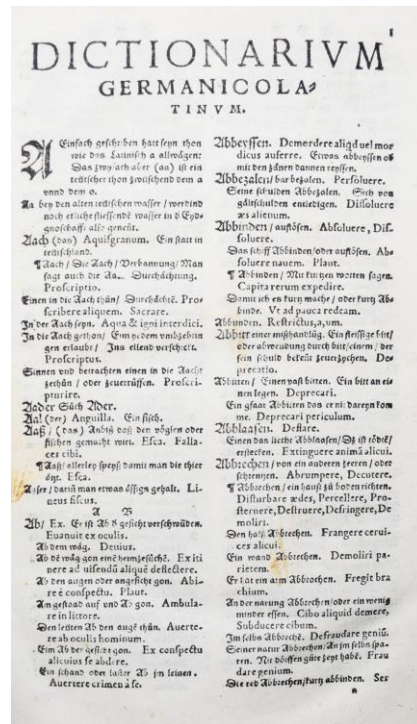 1
DICTIONARIVM
GERMANICOLA⸗
TINVM.
A Einfach geschriben hatt seyn thon
wie das Latinisch a allwägen:
Das zwyfach aber (aa) ist ein
teütscher thon zwüschend dem a
vnnd dem o.
Aa bey den alten teütschen wasser / werdind
noch etliche fliessende wasser in d Eyd⸗
gnoschafft also genent.
Aach (das) Aquisgranum. Ein statt in
teütschland.
¶ Aach / Die Aach / Verbannung / Man
sagt auch die Aa.. Durchächtung.
Proscriptio.
Einen in die Aach thůn / Durchächtē. Pro⸗
scribere aliquem. Sacrare.
In der Aach seyn. Aqua & igni interdici.
In die Aach gethon / Eim yedem vmbzebrin
gen erlaubt / Ins ellend verschickt.
Proscriptus.
Sinnen vnd betrachten einen in die Aacht
zethůn / oder zeuertrüssen. Proscri⸗
pturire.
Aader Sůch Ader.
Aal (der) Anguilla. Ein fisch.
Aaß / (das) Anbiß daß den vöglen oder
fischen gemacht wirt. Esca. Falla⸗
ces cibi.
¶ Aaß / allerley speyß damit man die thier
äzt. Esca.
Aser / darinn man etwas ässigs gehalt. Li⸗
neus fiscus.
A B
Ab / Ex. Er ist Ab d gesicht verschwunden.
Euanuit ex oculis.
Ab dem wäg. Deuius.
Ab dē wäg gon einē heimzesůchē. Ex iti
nere ad uisendū aliquē deflectere.
Ab den augen oder angesicht gon. Abi⸗
re è conspectu. Plaut.
Am gestaad auf vnd Ab gon. Ambula⸗
re in littore.
Den leüten Ab den augē thůn. Auerte⸗
re ab oculis hominum.
Eim Ab der gesicht gon. Ex conspectu
alicuius se abdere.
Ein schand oder laster Ab jm leinen.
Auertere crimen à se.
Abbeyssen. Demordere aliqd uel mor
dicus auferre. Etwas abbeyssen od
mit den zänen dannen reyssen.
Abbezalen / bar bezalen. Persoluere.
Seine schulden Abbezalen. Sich von
gältschulden entledigen. Dissoluere
æs alienum.
Abbinden / auflösen. Absoluere, Dis⸗
soluere.
Das schiff Abbinden / oder auflösen. Ab⸗
soluere nauem. Plaut.
¶ Abbinden / Mit kurtzen worten sagen.
Capita rerum expedire.
Damit ich es kurtz mache / oder kurtz Ab⸗
binde. Vt ad pauca redeam.
Abbunden. Restrictus, a, um.
Abbitt einer mißhandlūg. Ein fleissige bitt /
oder abwendung durch bitt / einem / der
sein schuld bekent zeuerzychen. De⸗
precatio.
Abbitten / Einen vast bitten. Ein bitt an ei⸗
nen legen. Deprecari.
Ein gfaar Abbitten das er nit dareyn kom
me. Deprecari periculum.
Abblaasen. Deflare.
Einen das liecht Abblaasen / Dz ist tödtē /
erstecken. Extinguere animā alicui.
Abbrechen / von ein anderen zeeren / oder
schrentzen. Abrumpere, Decutere.
¶ Abbrechen / ein hauß zů boden richten.
Disturbare ædes, Percellere, Pro⸗
sternere, Destruere, Defringere, De
moliri.
Den halß Abbrechen. Frangere cerui⸗
ces alicui.
Ein wand Abbrechen. Demoliri pa⸗
rietem.
Er hat ein arm Abbrochen. Fregit bra
chium.
An der narung Abbrechen / oder ein wenig
minder essen. Cibo aliquid demere,
Subducere cibum.
Im selbs Abbrechē. Defraudare geniū.
Seiner natur Abbrechen / An jm selbs spa⸗
ren. Nit dörffen gůte zeyt habē. Frau
dare genium.
Die red Abbrechen / kurtz abbinden. Ser
a